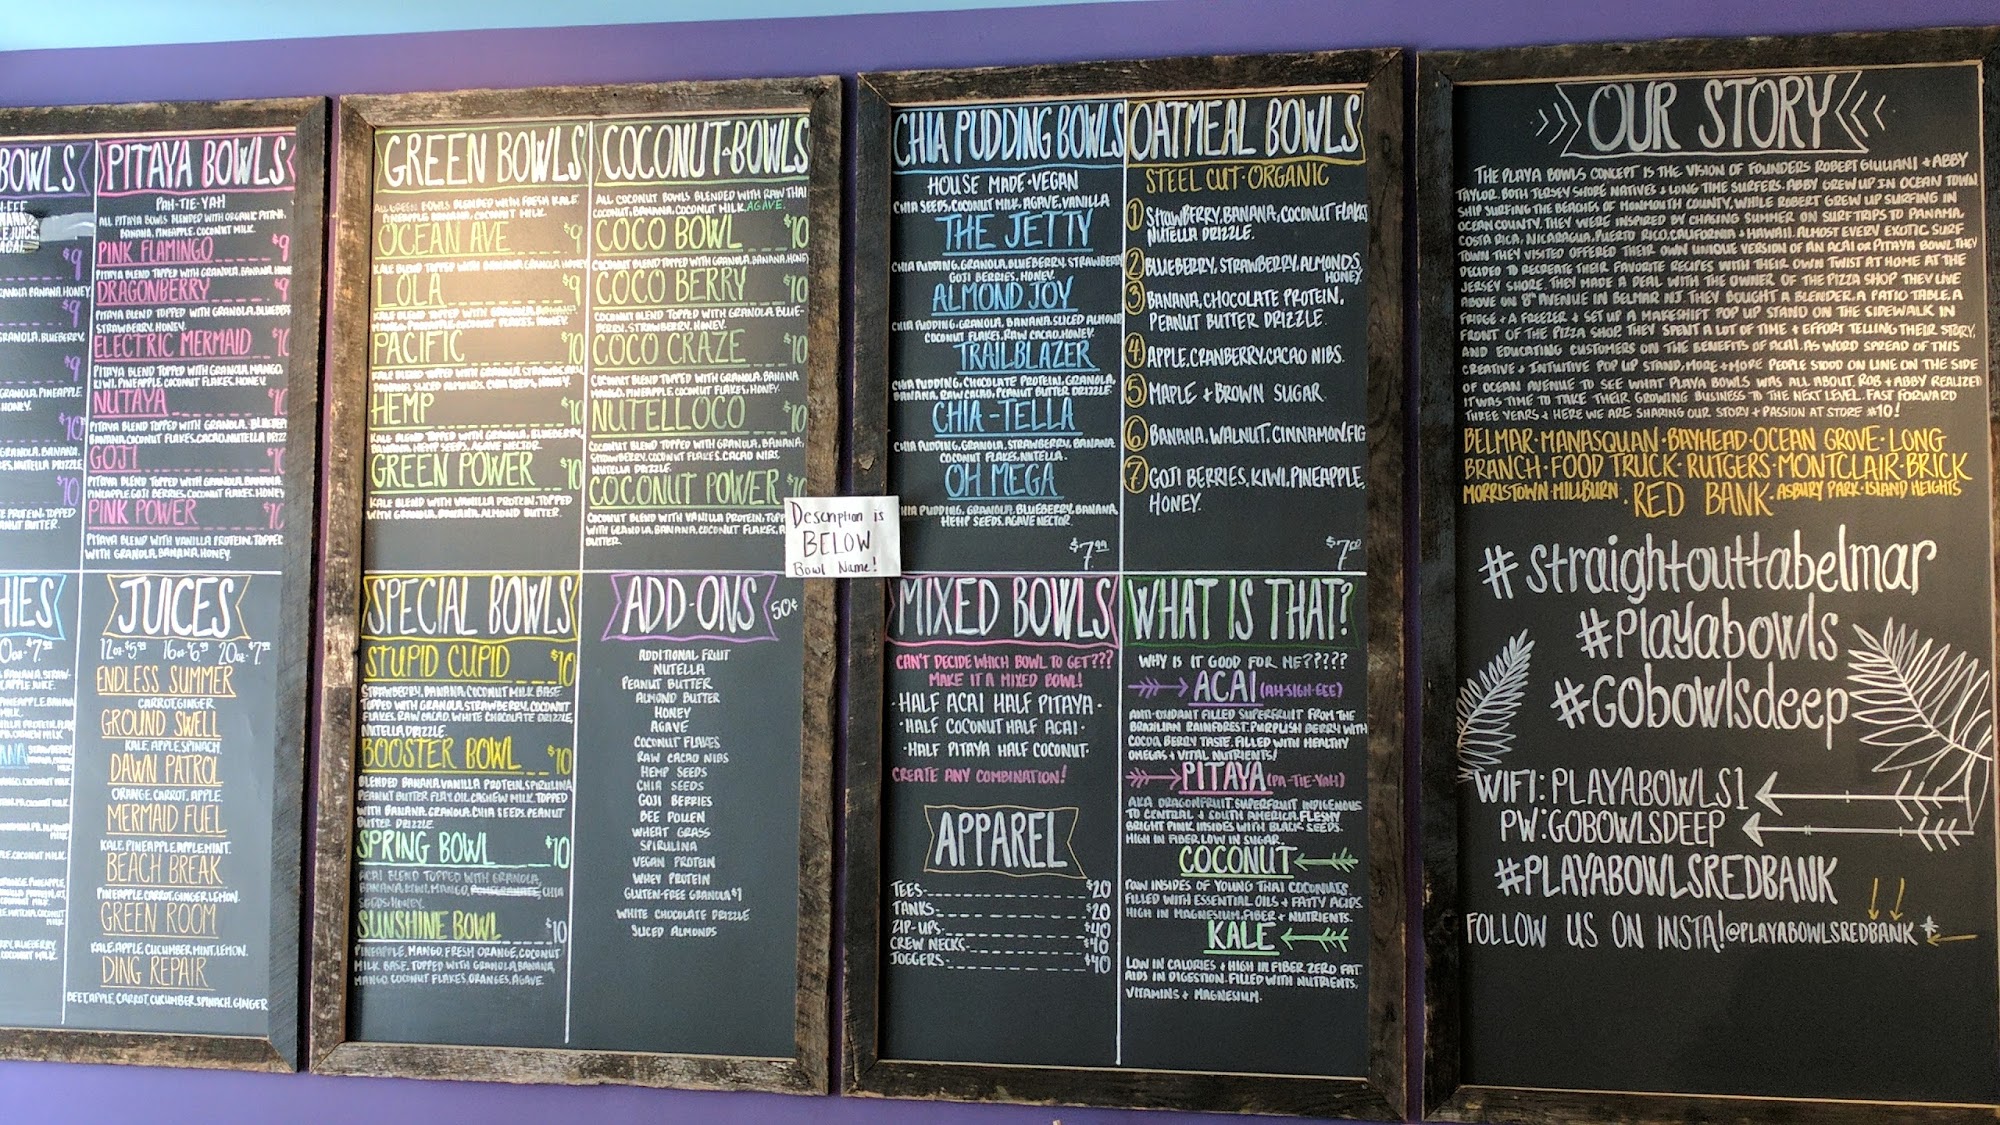 BOWLS
$9
$9
$9
$10
$10
PITAYA BOWLS
PAH-TIE-YAH
ALL PITAYA BOWLS BLENDED WITH ORGANIC PITAYA,
BANANA, PINEAPPLE, COCONUT MILK.
PINK FLAMINGO $9
PITAYA BLEND TOPPED WITH GRANOLA, BANANA, HONEY
DRAGONBERRY $9
PITAYA BLEND TOPPED WITH GRANOLA, BLUEBERRY
STRAWBERRY, HONEY.
ELECTRIC MERMAID $10
PITAYA BLEND TOPPED WITH GRANOLA, MANGO,
KIWI, PINEAPPLE COCONUT FLAKES, HONEY.
NUTAYA $10
PITAYA BLEND TOPPED WITH GRANOLA, BLUEBERRY
BANANA, COCONUT FLAKES, CACAO, NUTELLA DRIZZ
GOJI $10
PITAYA BLEND TOPPED WITH GRANOLA, BANANA,
PINEAPPLE, GOJI BERRIES, COCONUT FLAKES, HONEY
PINK POWER $10
PITAYA BLEND WITH VANILLA PROTEIN, TOPPED
WITH GRANOLA, BANANA, HONEY.
JUICES
12oz-$5.99 16oz-$6.99 20oz-$7.99
ENDLESS SUMMER
CARROT, GINGER
GROUND SWELL
KALE, APPLE, SPINACH.
DAWN PATROL
ORANGE, CARROT, APPLE.
MERMAID FUEL
KALE, PINEAPPLE, APPLE, MINT.
BEACH BREAK
PINEAPPLE, CARROT, GINGER, LEMON.
GREEN ROOM
KALE, APPLE, CUCUMBER, MINT, LEMON.
DING REPAIR
BEET, APPLE, CARROT, CUCUMBER, SPINACH, GINGER
GREEN BOWLS
ALL GREEN BOWLS BLENDED WITH FRESH KALE,
PINEAPPLE, BANANA, COCONUT MILK.
OCEAN AVE $9
KALE BLEND TOPPED WITH BANANA, GRANOLA, HONEY
LOLA $9
KALE BLEND TOPPED WITH GRANOLA,
MANGO, PINEAPPLE, COCONUT FLAKES, HONEY.
PACIFIC $10
KALE BLEND TOPPED WITH GRANOLA, STRAWBERRY,
BANANA, SLICED ALMONDS, CHIA SEEDS, HONEY.
HEMP $10
KALE BLEND TOPPED WITH GRANOLA, BLUEBERRY,
BANANA, HEMP SEEDS, AGAVE NECTOR.
GREEN POWER $10
KALE BLEND WITH VANILLA PROTEIN, TOPPED
WITH GRANOLA, BANANA, ALMOND BUTTER.
COCONUT BOWLS
ALL COCONUT BOWLS BLENDED WITH RAW THAI
COCONUT, BANANA, COCONUT MILK, AGAVE.
COCO BOWL $10
COCONUT BLEND TOPPED WITH GRANOLA, BANANA, HONEY
COCO BERRY $10
COCONUT BLEND TOPPED WITH GRANOLA, BLUE-
BERRY, STRAWBERRY, HONEY.
COCO CRAZE $10
COCONUT BLEND TOPPED WITH GRANOLA, BANANA
MANGO, PINEAPPLE, COCONUT FLAKES, HONEY.
NUTELLOCO $10
COCONUT BLEND TOPPED WITH GRANOLA, BANANA,
STRAWBERRY, COCONUT FLAKES, CACAO NIBS,
NUTELLA DRIZZLE.
COCONUT POWER $10
COCONUT BLEND WITH VANILLA PROTEIN, TOPP
WITH GRANOLA, BANANA, COCONUT FLAKES, A
BUTTER.
Description is
BELOW
Bowl Name!
SPECIAL BOWLS
STUPID CUPID $10
STRAWBERRY, BANANA, COCONUT MILK BASE
TOPPED WITH GRANOLA, STRAWBERRY, COCONUT
FLAKES, RAW CACAO, WHITE CHOCOLATE DRIZZLE,
NUTELLA DRIZZLE.
BOOSTER BOWL $10
BLENDED BANANA, VANILLA PROTEIN, SPIRULINA
PEANUT BUTTER, FLAX OIL, CASHEW MILK. TOPPED
WITH BANANA, GRANOLA, CHIA SEEDS, PEANUT
BUTTER DRIZZLE.
SPRING BOWL $10
ACAI BLEND TOPPED WITH GRANOLA,
BANANA, KIWI, MANGO, POMEGRANATE, CHIA
SEEDS, HONEY.
SUNSHINE BOWL $10
PINEAPPLE, MANGO, FRESH ORANGE, COCONUT
MILK BASE. TOPPED WITH GRANOLA, BANANA,
MANGO, COCONUT FLAKES, ORANGES, AGAVE.
ADD-ONS 50¢
ADDITIONAL FRUIT
NUTELLA
PEANUT BUTTER
ALMOND BUTTER
HONEY
AGAVE
COCONUT FLAKES
RAW CACAO NIBS
HEMP SEEDS
CHIA SEEDS
GOJI BERRIES
BEE POLLEN
WHEAT GRASS
SPIRULINA
VEGAN PROTEIN
WHEY PROTEIN
GLUTEN-FREE GRANOLA $1
WHITE CHOCOLATE DRIZZLE
SLICED ALMONDS
CHIA PUDDING BOWLS
HOUSE MADE·VEGAN
CHIA SEEDS, COCONUT MILK, AGAVE, VANILLA
THE JETTY
CHIA PUDDING, GRANOLA, BLUEBERRY, STRAWBERRY
GOJI BERRIES, HONEY.
ALMOND JOY
CHIA PUDDING, GRANOLA, BANANA, SLICED ALMOND
COCONUT FLAKES, RAW CACAO, HONEY.
TRAILBLAZER
CHIA PUDDING, CHOCOLATE PROTEIN, GRANOLA,
BANANA, RAW CACAO, PEANUT BUTTER DRIZZLE
CHIA-TELLA
CHIA PUDDING, GRANOLA, STRAWBERRY, BANANA
COCONUT FLAKES, NUTELLA.
OH MEGA
CHIA PUDDING, GRANOLA, BLUEBERRY, BANANA,
HEMP SEEDS, AGAVE NECTOR.
$7.99
OATMEAL BOWLS
STEEL CUT·ORGANIC
1 STRAWBERRY, BANANA, COCONUT FLAKES
NUTELLA DRIZZLE.
2 BLUEBERRY, STRAWBERRY, ALMONDS,
HONEY.
3 BANANA, CHOCOLATE PROTEIN,
PEANUT BUTTER DRIZZLE.
4 APPLE, CRANBERRY, CACAO NIBS.
5 MAPLE + BROWN SUGAR
6 BANANA, WALNUT, CINNAMON, FIG
7 GOJI BERRIES, KIWI, PINEAPPLE,
HONEY.
$7.00
MIXED BOWLS
CAN'T DECIDE WHICH BOWL TO GET???
MAKE IT A MIXED BOWL!
·HALF ACAI HALF PITAYA·
·HALF COCONUT HALF ACAI·
·HALF PITAYA HALF COCONUT·
CREATE ANY COMBINATION!
APPAREL
TEES $20
TANKS $20
ZIP-UPS $40
CREW NECKS $40
JOGGERS $40
WHAT IS THAT?
WHY IS IT GOOD FOR ME?????
ACAI (AH-SIGH-EEE)
ANTI-OXIDANT FILLED SUPERFRUIT FROM THE
BRAZILIAN RAINFOREST. PURPLISH BERRY WITH
COCOA, BERRY TASTE. FILLED WITH HEALTHY
OMEGAS + VITAL NUTRIENTS!
PITAYA (PA-TIE-YAH)
AKA DRAGONFRUIT. SUPERFRUIT INDIGENOUS
TO CENTRAL & SOUTH AMERICA. FLESHY
BRIGHT PINK INSIDES WITH BLACK SEEDS.
HIGH IN FIBER, LOW IN SUGAR.
COCONUT
RAW INSIDES OF YOUNG THAI COCONUTS.
FILLED WITH ESSENTIAL OILS + FATTY ACIDS.
HIGH IN MAGNESIUM, FIBER + NUTRIENTS.
KALE
LOW IN CALORIES + HIGH IN FIBER. ZERO FAT
AIDS IN DIGESTION. FILLED WITH NUTRIENTS,
VITAMINS + MAGNESIUM.
OUR STORY
THE PLAYA BOWLS CONCEPT IS THE VISION OF FOUNDERS ROBERT GIULIANI + ABBY
TAYLOR. BOTH JERSEY SHORE NATIVES + LONG TIME SURFERS. ABBY GREW UP IN OCEAN TOWN
SHIP SURFING THE BEACHES OF MONMOUTH COUNTY, WHILE ROBERT GREW UP SURFING IN
OCEAN COUNTY. THEY WERE INSPIRED BY CHASING SUMMER ON SURF TRIPS TO PANAMA,
COSTA RICA, NICARAGUA, PUERTO RICO, CALIFORNIA + HAWAII. ALMOST EVERY EXOTIC SURF
TOWN THEY VISITED OFFERED THEIR OWN UNIQUE VERSION OF AN ACAI OR PITAYA BOWL. THEY
DECIDED TO RECREATE THEIR FAVORITE RECIPES WITH THEIR OWN TWIST AT HOME AT THE
JERSEY SHORE. THEY MADE A DEAL WITH THE OWNER OF THE PIZZA SHOP THEY LIVE
ABOVE ON 8th AVENUE IN BELMAR NJ. THEY BOUGHT A BLENDER, A PATIO TABLE, A
FRIDGE + A FREEZER + SET UP A MAKESHIFT POP UP STAND ON THE SIDEWALK IN
FRONT OF THE PIZZA SHOP. THEY SPENT A LOT OF TIME + EFFORT TELLING THEIR STORY,
AND EDUCATING CUSTOMERS ON THE BENEFITS OF ACAI. AS WORD SPREAD OF THIS
CREATIVE + INTUITIVE POP UP STAND, MORE + MORE PEOPLE STOOD ON LINE ON THE SIDE
OF OCEAN AVENUE TO SEE WHAT PLAYA BOWLS WAS ALL ABOUT. ROB + ABBY REALIZED
IT WAS TIME TO TAKE THEIR GROWING BUSINESS TO THE NEXT LEVEL. FAST FORWARD
THREE YEARS + HERE WE ARE SHARING OUR STORY + PASSION AT STORE #10!
BELMAR·MANASQUAN·BAYHEAD·OCEAN GROVE·LONG
BRANCH·FOOD TRUCK·RUTGERS·MONTCLAIR·BRICK
MORRISTOWN·MILLBURN·RED BANK·ASBURY PARK·ISLAND HEIGHTS
#straightouttabelmar
#Playabowls
#Gobowlsdeep
WIFI: PLAYABOWLS1
PW: GOBOWLSDEEP
#PLAYABOWLSREDBANK
FOLLOW US ON INSTA! @PLAYABOWLSREDBANK